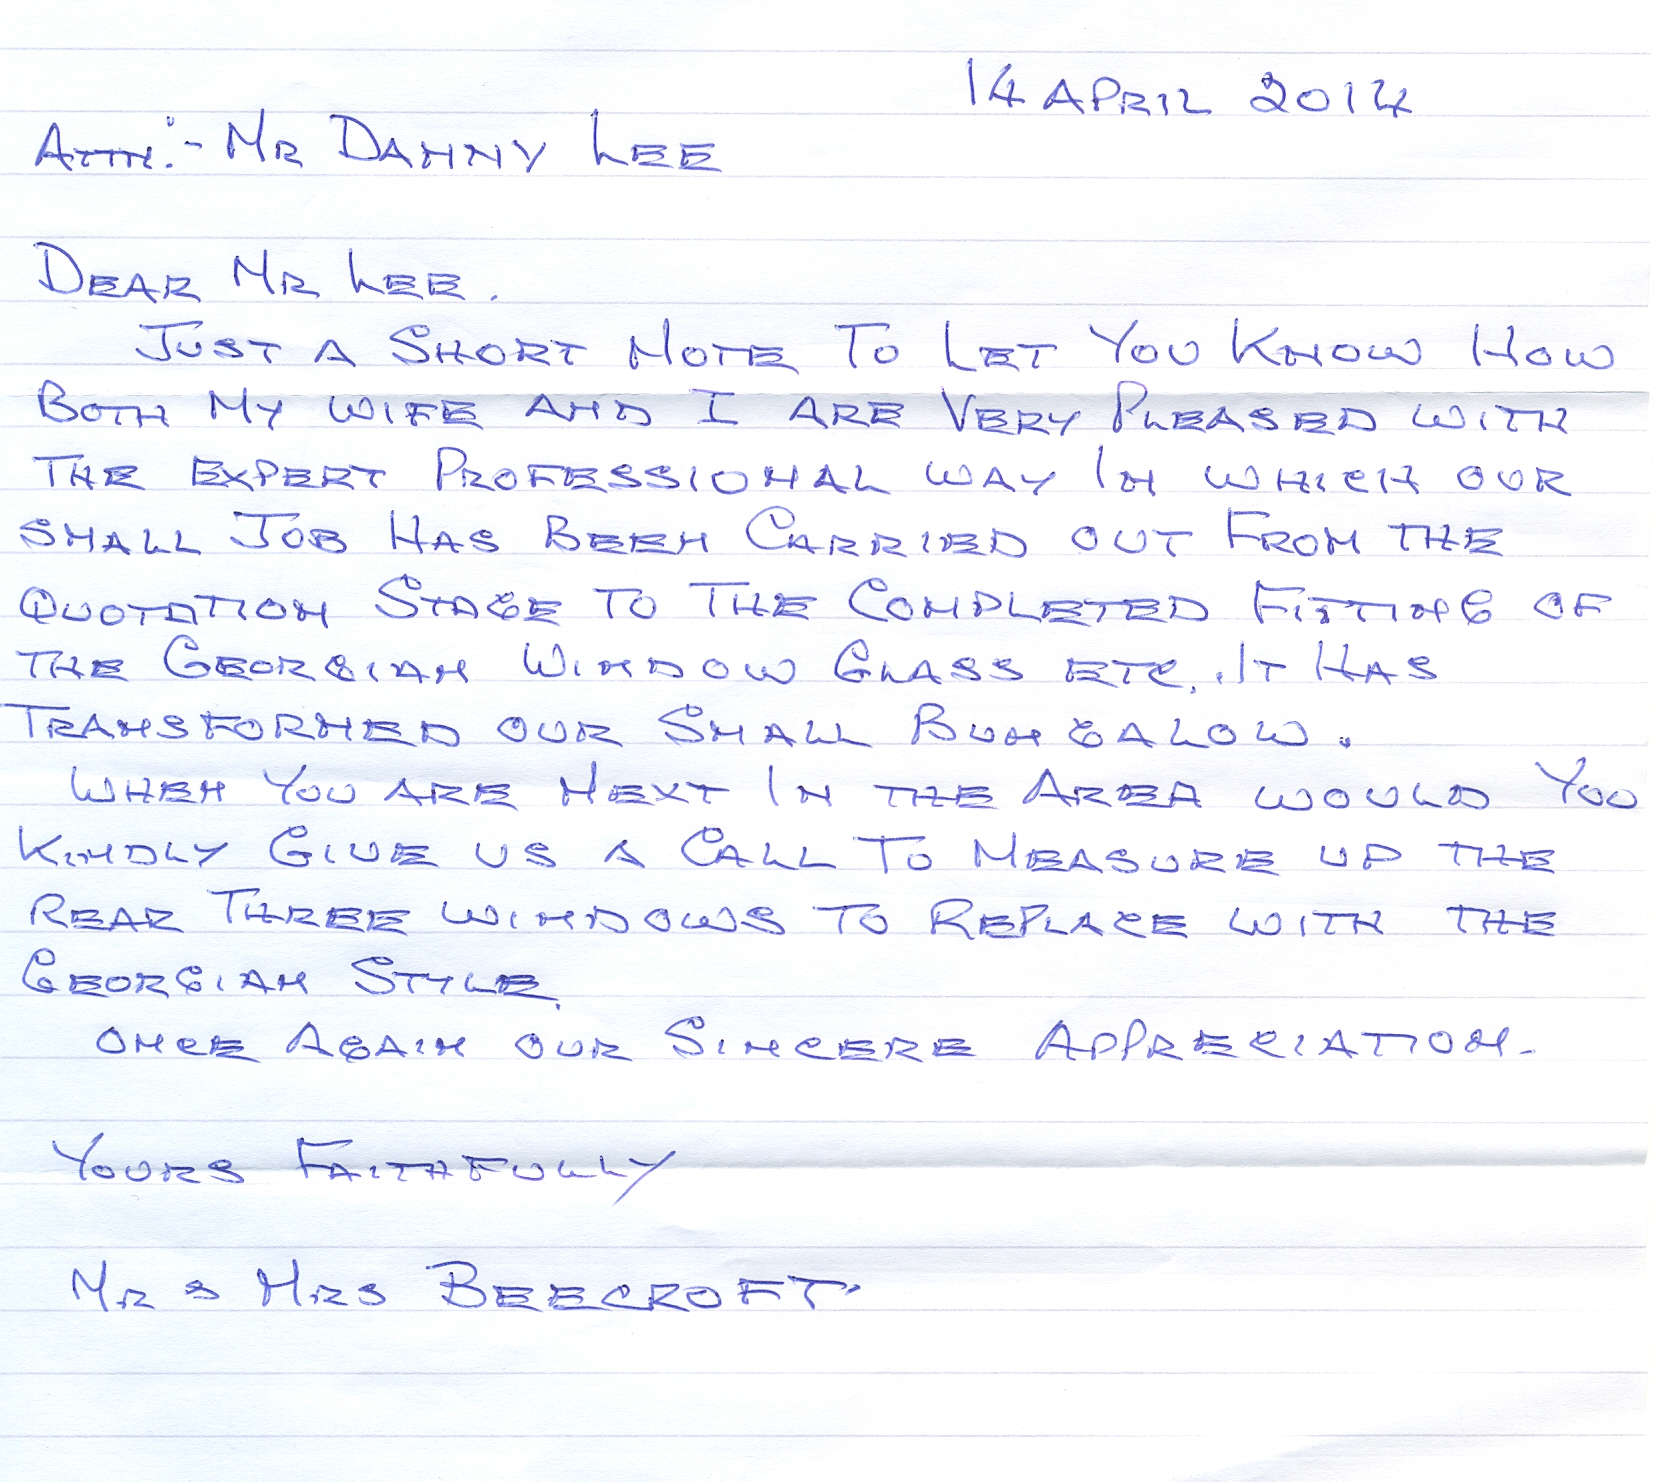 14 APRIL 2014
ATTN:- MR DANNY LEE
DEAR MR LEE.
JUST A SHORT NOTE TO LET YOU KNOW HOW
BOTH MY WIFE AND I ARE VERY PLEASED WITH
THE EXPERT PROFESSIONAL WAY IN WHICH OUR
SMALL JOB HAS BEEN CARRIED OUT FROM THE
QUOTATION STAGE TO THE COMPLETED FITTING OF
THE GEORGIAN WINDOW GLASS ETC. IT HAS
TRANSFORMED OUR SMALL BUNGALOW.
WHEN YOU ARE NEXT IN THE AREA WOULD YOU
KINDLY GIVE US A CALL TO MEASURE UP THE
REAR THREE WINDOWS TO REPLACE WITH THE
GEORGIAN STYLE.
ONCE AGAIN OUR SINCERE APPRECIATION.
YOURS FAITHFULLY
MR & MRS BEECROFT.